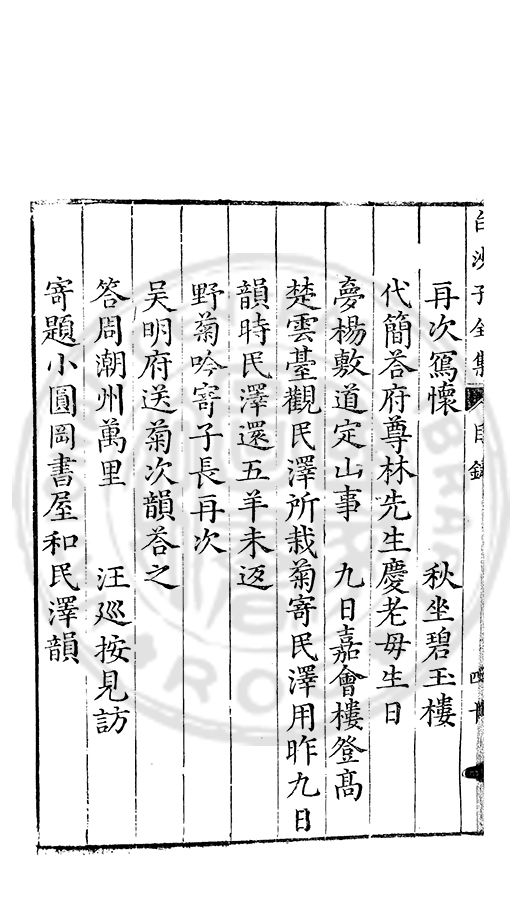 白沙子全集 目錄 四十
再次寫懷 秋坐碧玉樓
代簡荅府尊林先生慶老母生日
夢楊敷道定山事 九日嘉會樓登高
楚雲臺觀民澤所栽菊寄民澤用昨九日
韻時民澤還五羊未返
野菊吟寄子長再次
吳明府送菊次韻荅之
答周潮州萬里 汪廵按見訪
寄題小圓岡書屋和民澤韻